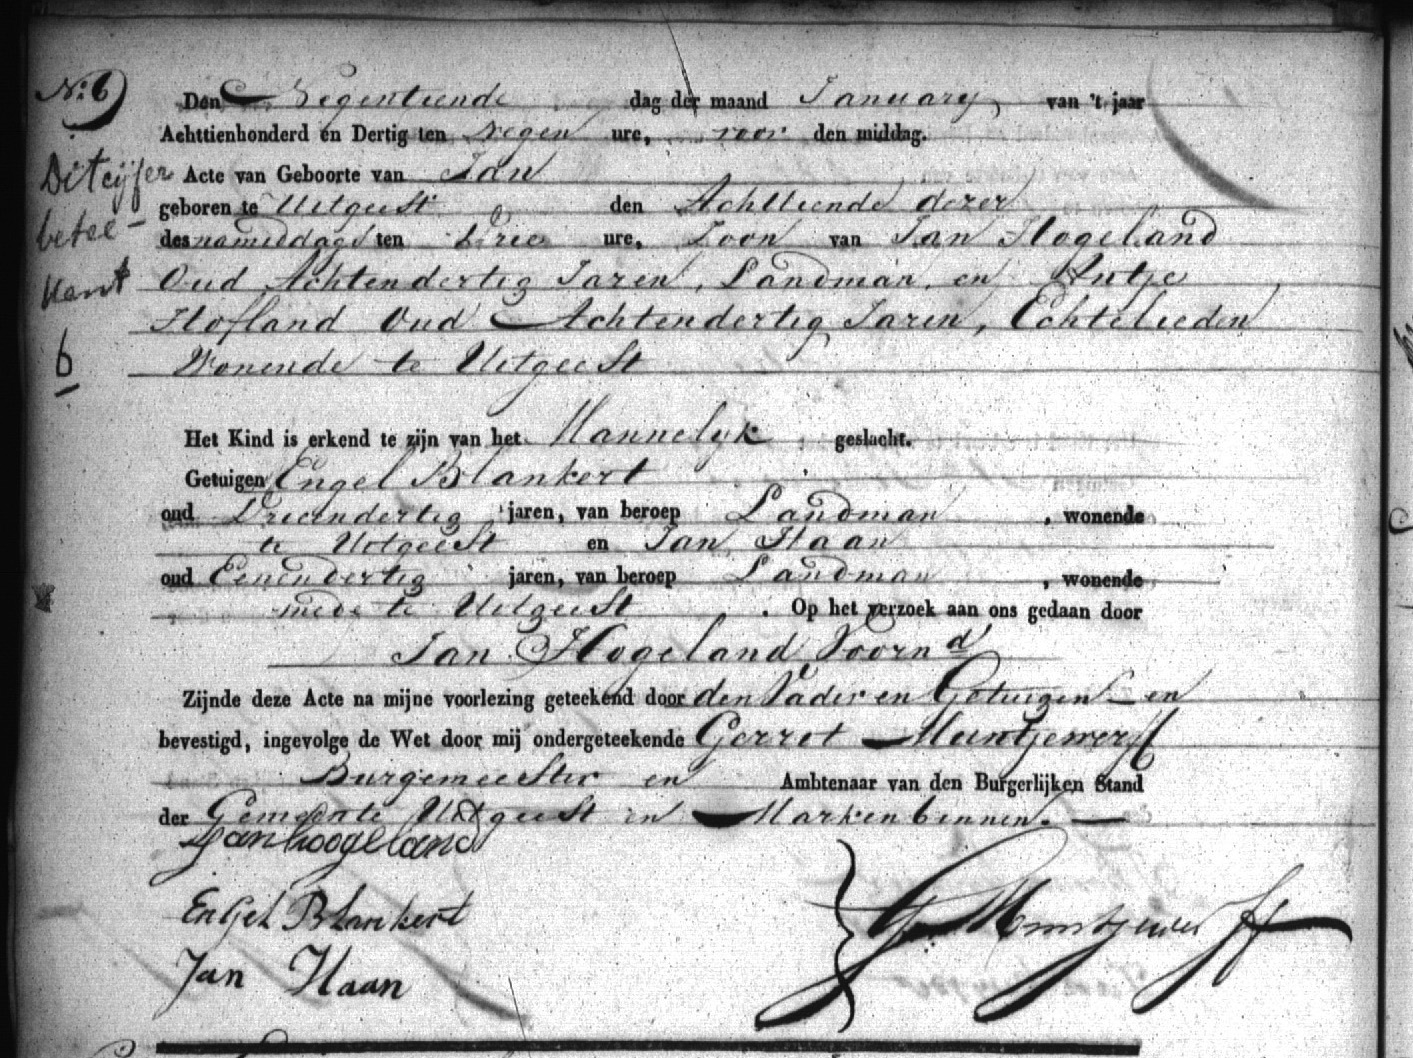 N: 6
Den Negentiende dag der maand January van 't jaar
Achttienhonderd en Dertig ten negen ure, voor den middag.
Dit cijfer
betee-
kent
6
Acte van Geboorte van Jan
geboren te Uitgeest den Achttiende dezer
des namiddags ten Drie ure, Zoon van Jan Hogeland
Oud Achtendertig Jaren, Landman, en Antje
Hofland Oud Achtendertig Jaren, Echtelieden
Wonende te Uitgeest
Het Kind is erkend te zijn van het Mannelyk geslacht.
Getuigen Engel Blankert
oud Drieendertig jaren, van beroep Landman, wonende
te Uitgeest en Jan Haan
oud Eenendertig jaren, van beroep Landman, wonende
mede te Uitgeest. Op het verzoek aan ons gedaan door
Jan Hogeland Voornd
Zijnde deze Acte na mijne voorlezing geteekend door den Vader en Getuigen en
bevestigd, ingevolge de Wet door mij ondergeteekende Gerret Muntjewerff
Burgemeester en Ambtenaar van den Burgerlijken Stand
der Gemeente Uitgeest en Markenbinnen.
Jan hoogeland
Engel Blankert
Jan Haan
G. Muntjewerff